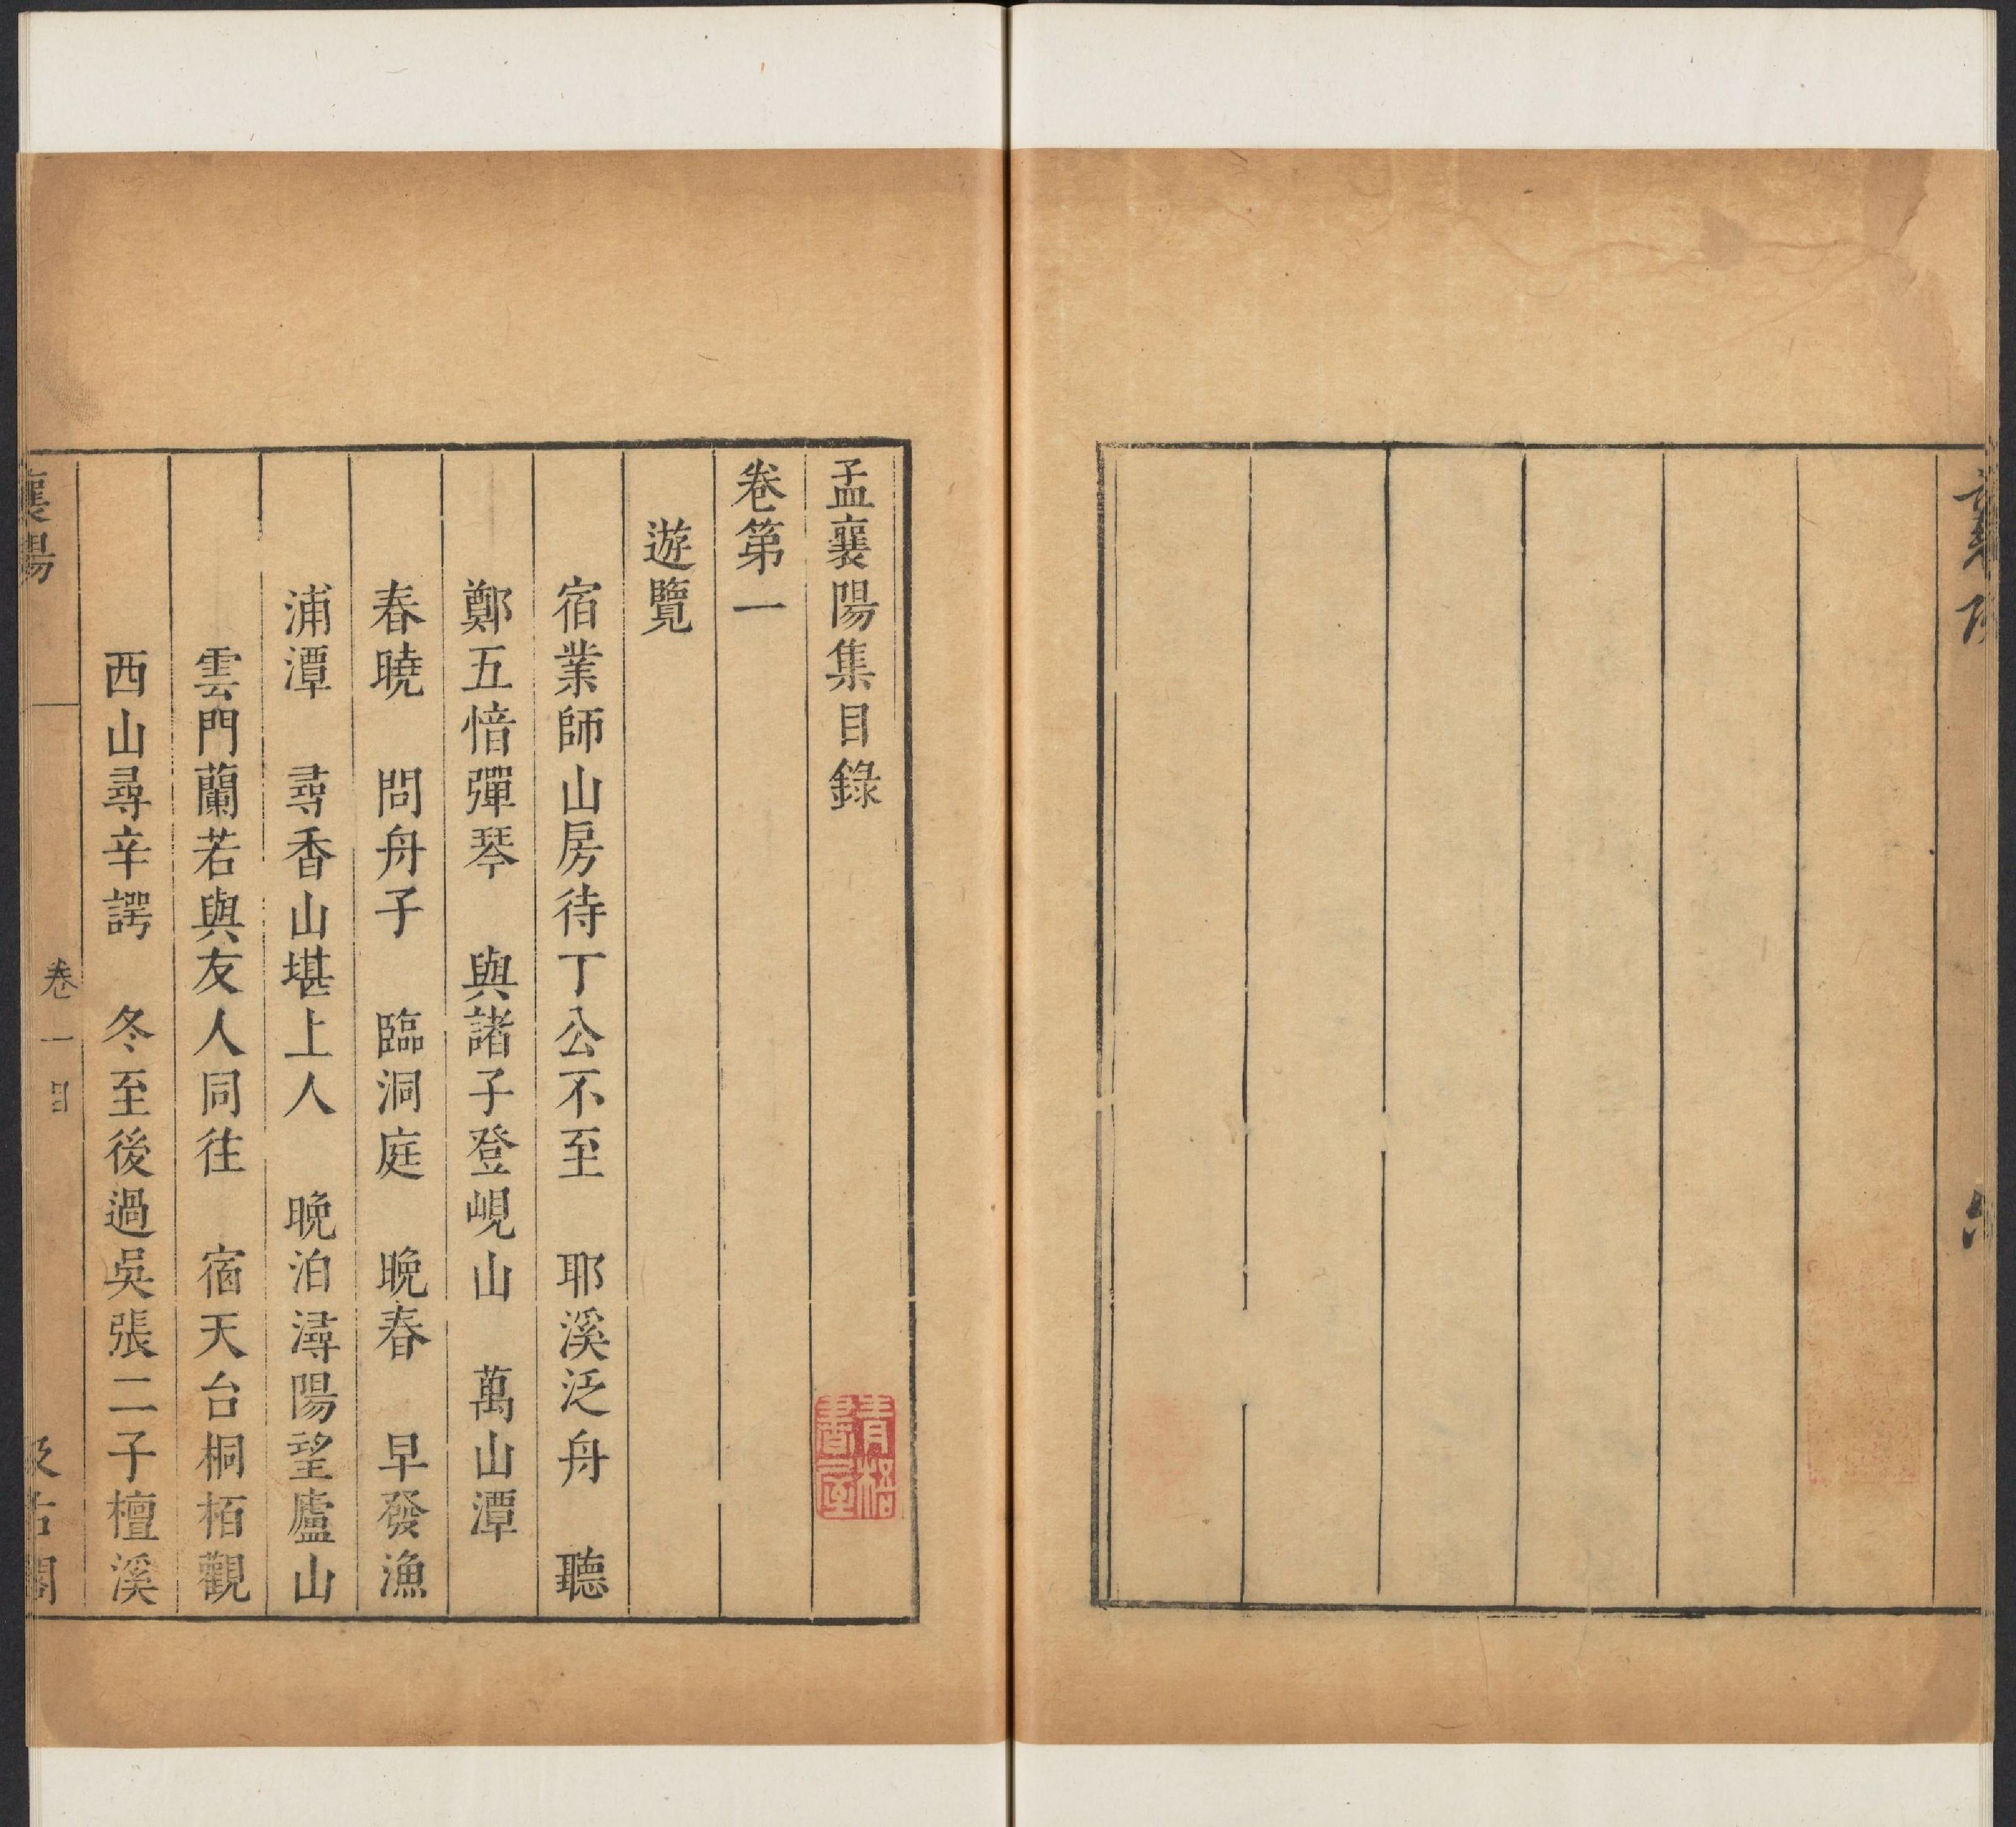 襄陽
孟襄陽集目錄
卷第一
遊覽
宿業師山房待丁公不至　耶溪泛舟　聽
鄭五愔彈琴　與諸子登峴山　萬山潭
春曉　問舟子　臨洞庭　晚春　早發漁
浦潭　尋香山堪上人　晚泊潯陽望廬山
雲門蘭若與友人同往　宿天台桐栢觀
西山尋辛諤　冬至後過吳張二子檀溪
襄陽　卷一目　汲古閣
青棓書屋